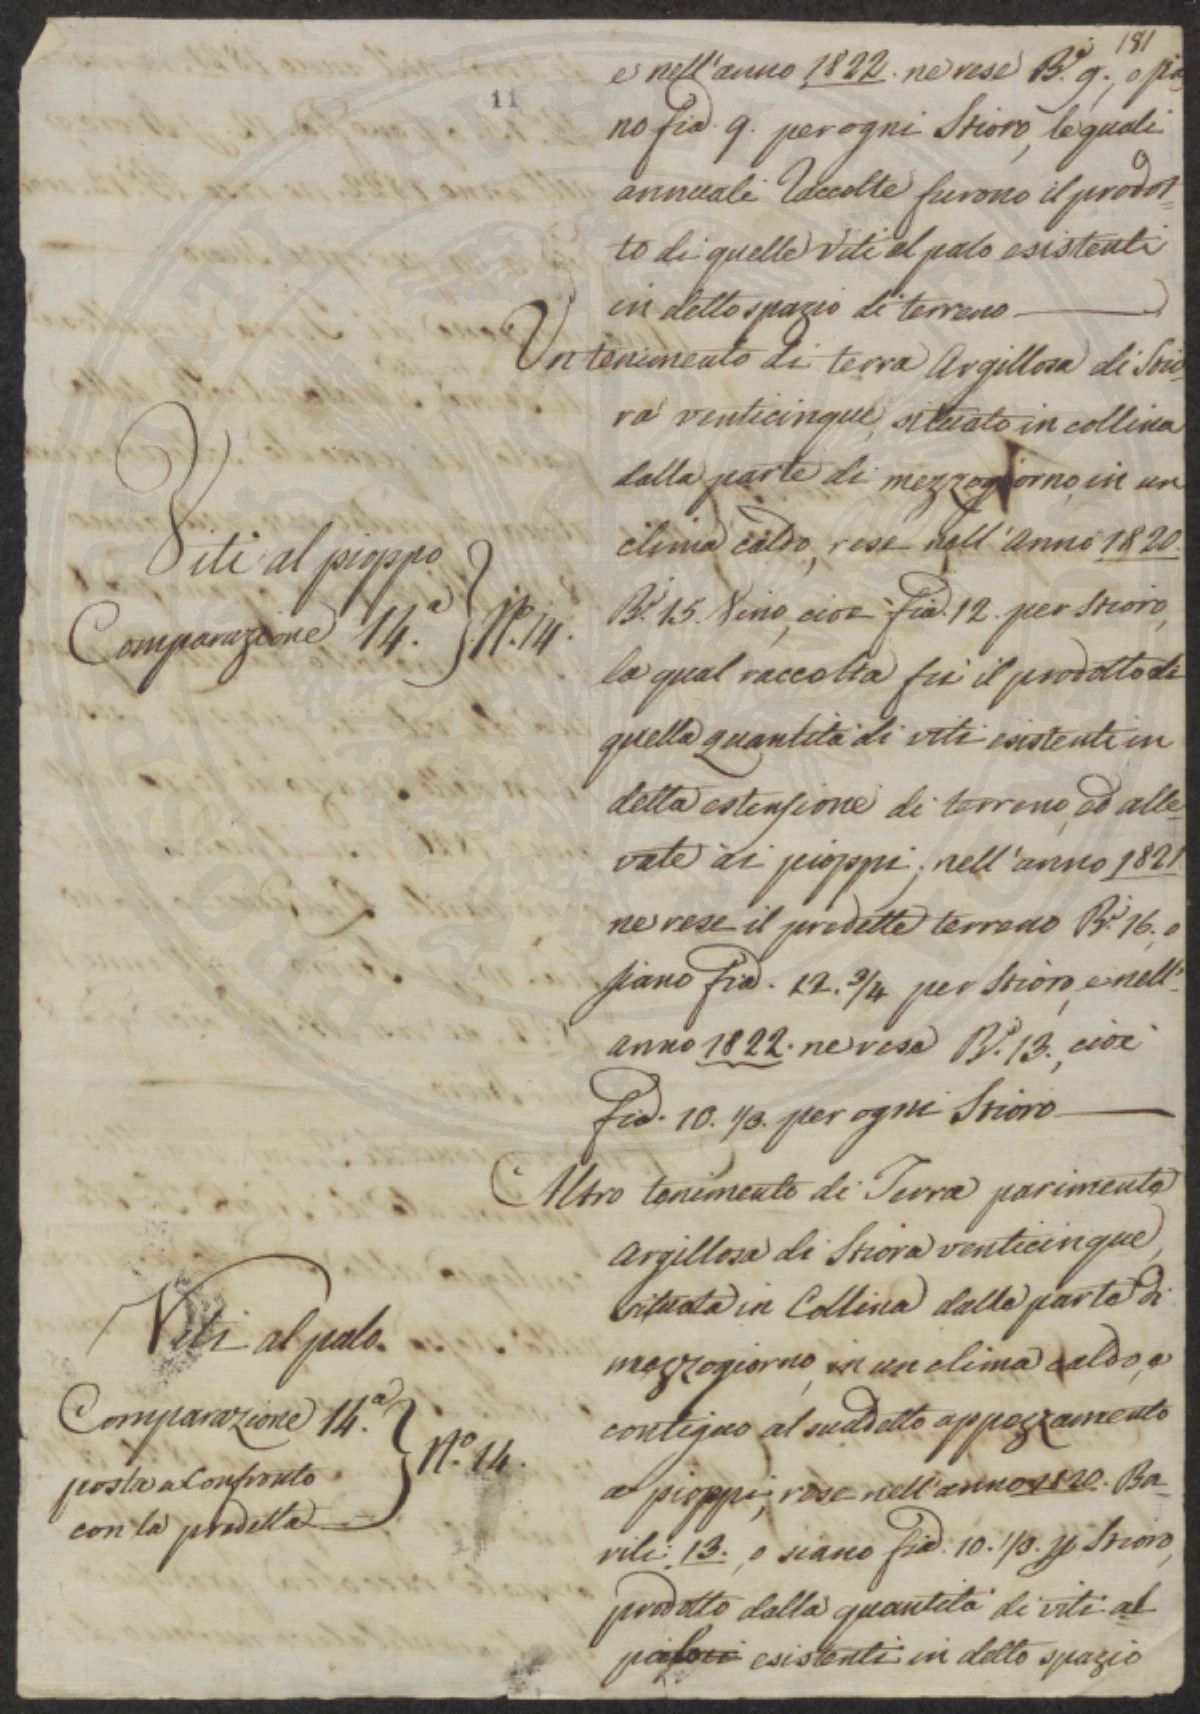 181
11
e nell'anno 1822. ne rese B.i 9., o sia-
no fia. 9. per ogni Stioro, le quali
annuali Raccolte furono il prodot-
to di quelle Viti al palo esistenti
in detto spazio di terreno
Viti al pioppo
Comparazione 14.a } N.o 14.
Un tenimento di terra Argillosa di Stio-
ra venticinque, situato in collina
dalla parte di mezzogiorno, in un
clima caldo, rese nell'Anno 1820.
B.i 15. Vino, cioè fia. 12. per Stioro,
la qual raccolta fu il prodotto di
quella quantità di viti esistenti in
detta estensione di terreno, ed alle-
vate ai pioppi; nell'anno 1821.
ne rese il predetto terreno B.i 16., o
siano fia. 12. 3/4 per Stioro, e nell'
anno 1822. ne rese B.i 13., cioè
fia. 10. 1/3. per ogni Stioro
Viti al palo.
Comparazione 14.a
posta a Confronto
con la predetta } N.o 14.
Altro tenimento di Terra parimente
Argillosa di Stiora venticinque,
situata in Collina dalla parte di
mezzogiorno, in un clima caldo, e
contiguo al suddetto appezzamento
a pioppi, rese nell'anno 1820. Ba-
rili 13., o siano fia. 10. 1/3. p Stioro,
prodotto dalla quantità di viti al
esistenti in detto spazio